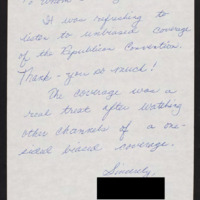 It was refreshing to
listen to unbiased coverage
of the Republican Convention.
Thank-you so much!
The coverage was a
real treat after watching
other channels of a one-
sided biased coverage.
Sincerely,